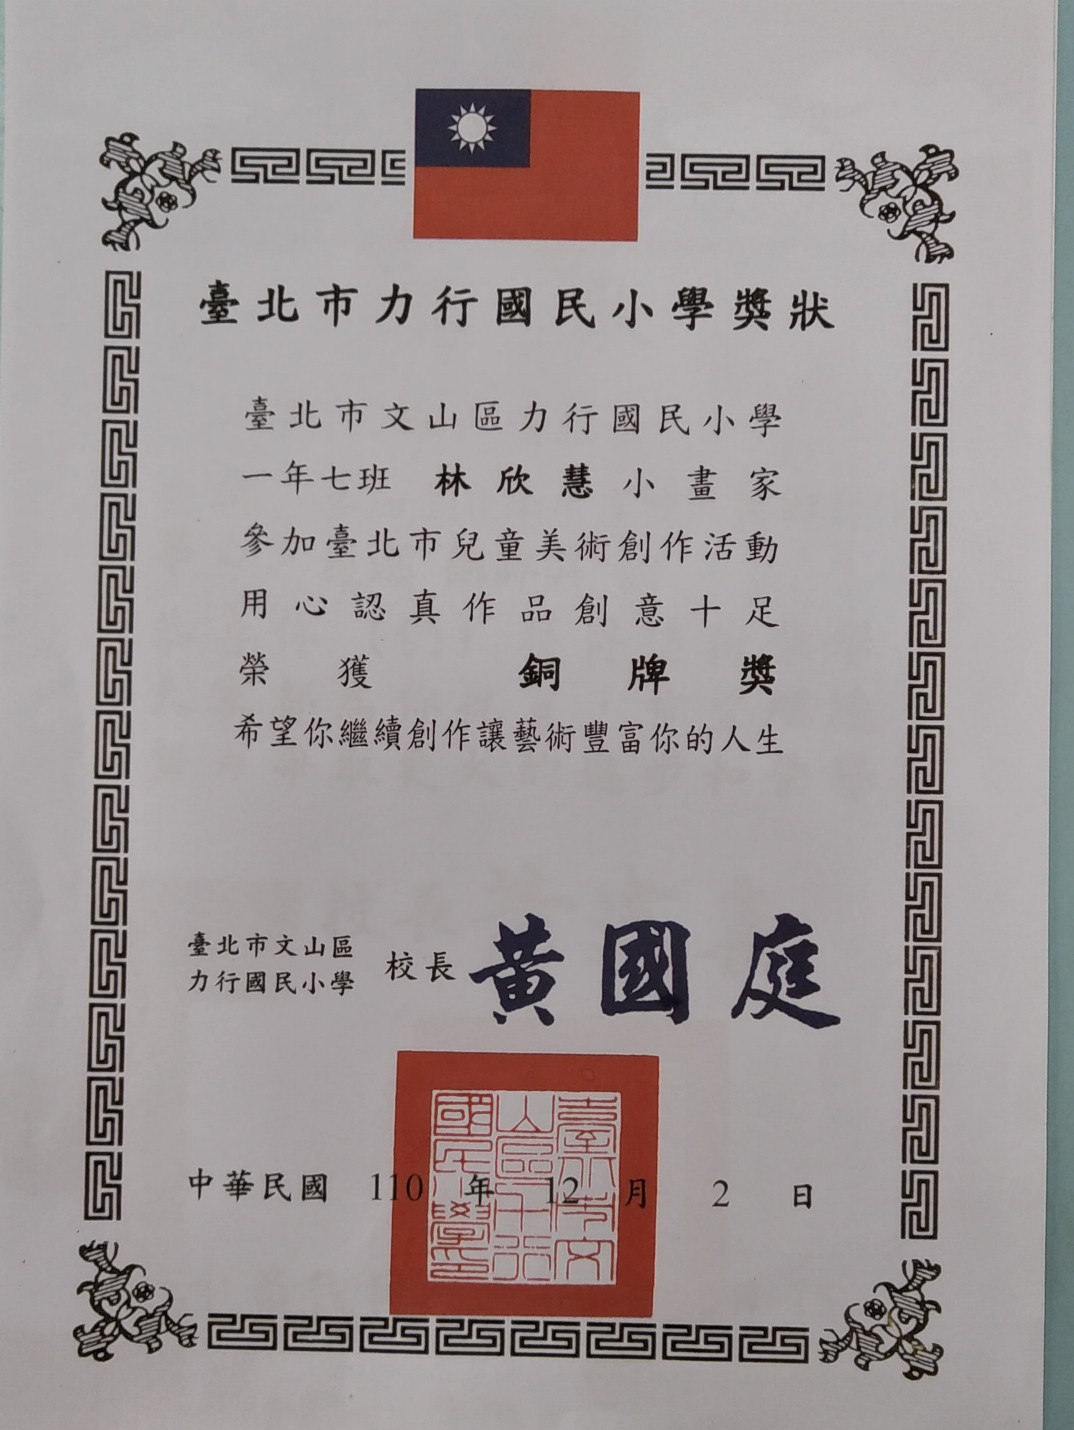 臺北市力行國民小學獎狀
臺北市文山區力行國民小學
一年七班 林欣慧小畫家
參加臺北市兒童美術創作活動
用心認真作品創意十足
榮獲 銅牌獎
希望你繼續創作讓藝術豐富你的人生
臺北市文山區
力行國民小學
校長 黃國庭
中華民國 110 年 12 月 2 日
臺北市文
山區力行
國民小學印